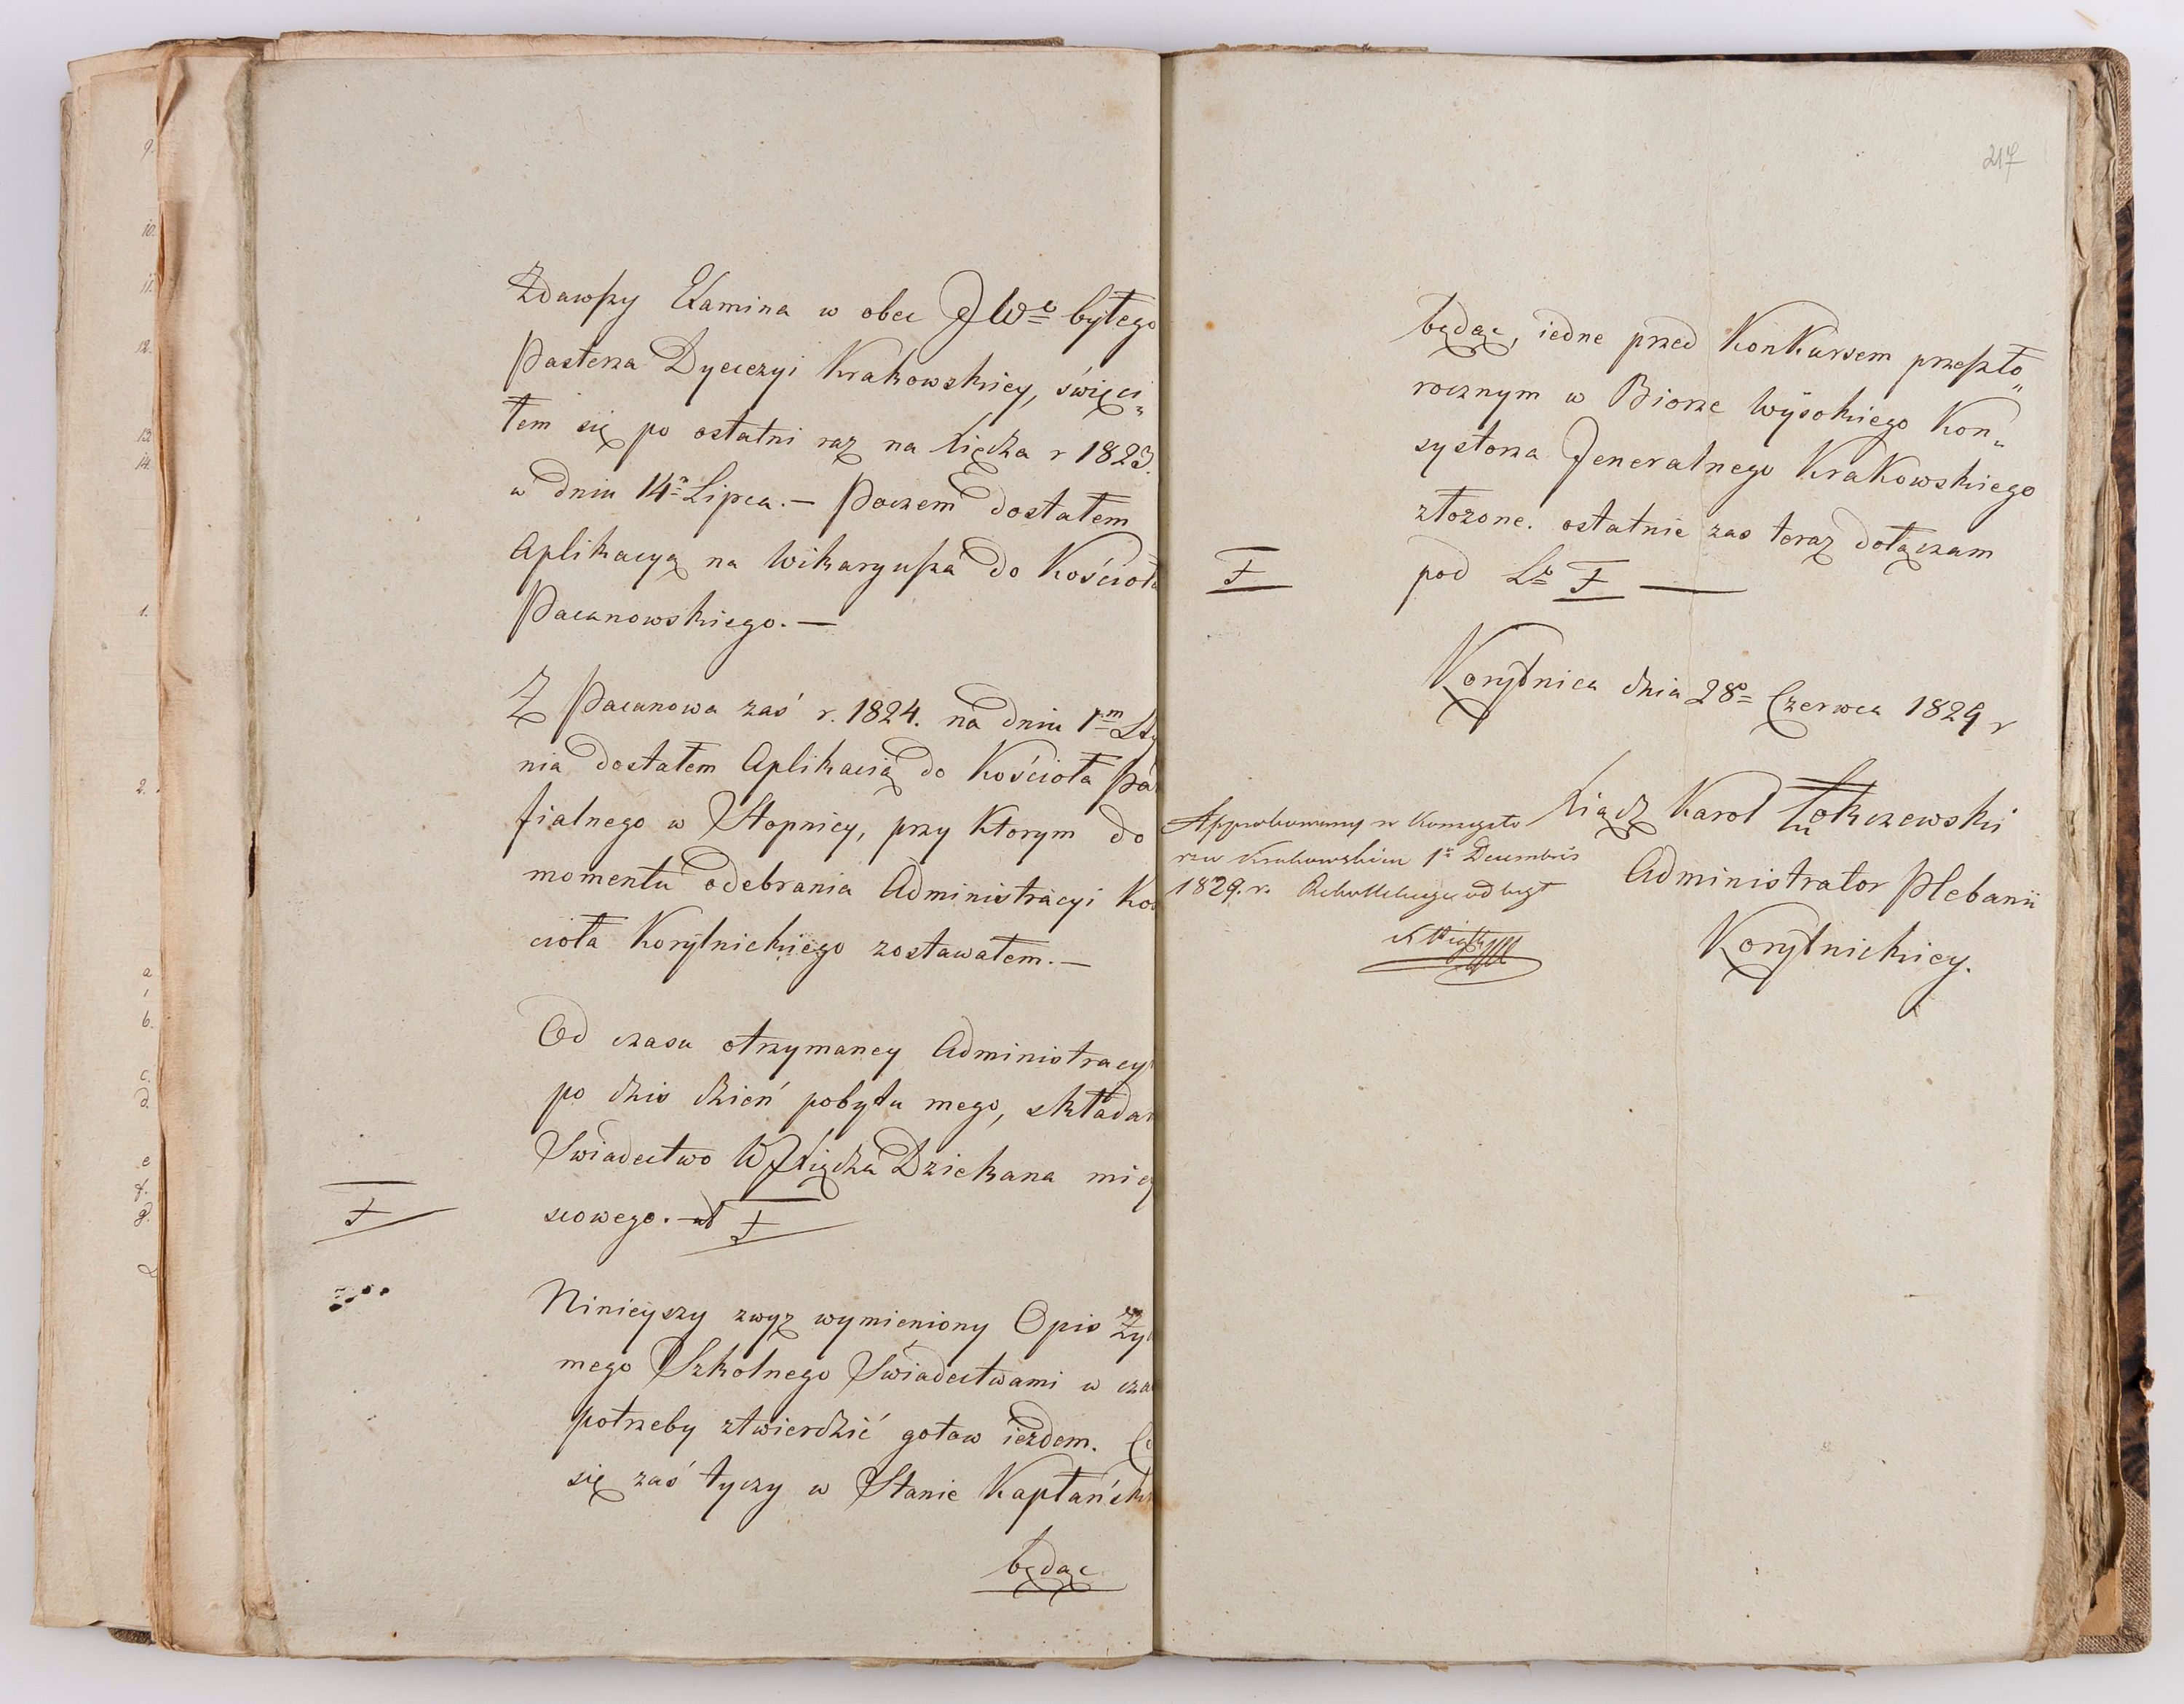 Zdawszy Examina w obec JWo byłego
Pasterza Dyecezyi Krakowskiey, święci„
łem się po ostatni raz na Xiędza r 1823.
w dniu 14o Lipca. — Poczem dostałem
Aplikacyą na Wikaryusza do Kościoła
Pacanowskiego. —
Z Pacanowa zaś r. 1824. na dniu 1m Sty
nia dostałem Aplikacią do Kościoła Pa
fialnego w Stopnicy, przy ktorym do
momentu odebrania Administracyi Koś
cioła Korytnickiego zostawałem. —
Od czasu otrzymaney Administracyi
po dzis dzień pobytu mego, składam
Swiadectwo WJXiędza Dziekana miey
scowego. — ad F
F
Ninieyszy zwyz wymieniony Opis Zy
mego Szkolnego Swiadectwami w cza
potrzeby ztwierdzić gotow iezdem. Co
się zaś tyczy w Stanie Kapłańsk
będąc
217
będąc, iedne przed Konkursem przeszło„
rocznym w Biorze Wysokiego Kon„
systorza Jeneralnego Krakowskiego
złozone. ostatnie zas teraz dołączam
F
pod La F —
Korytnica dnia 28o Czerwca 1829 r
Xiądz Karol Łokczewski
Administrator Plebanii
Korytnickiey.
Approbowany w Konsysto
rzu Krakowskim 1a Decembris
1829. r.
9.
10.
11.
12.
13.
14.
1.
2.
a
b.
c.
d.
e
f.
g.